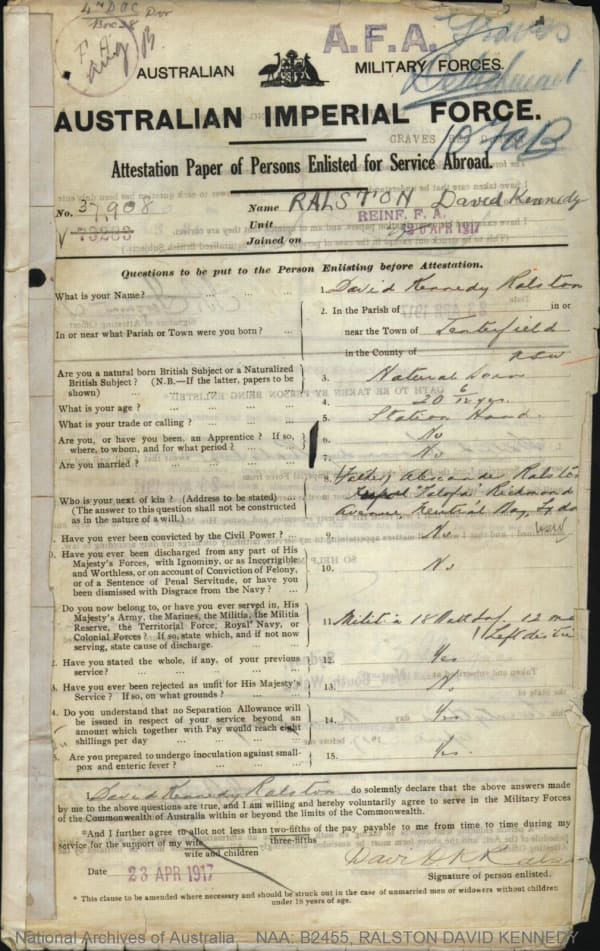 4th DAC Div
A.F.A. Graves
Detachment
AUSTRALIAN MILITARY FORCES.
AUSTRALIAN IMPERIAL FORCE.
GRAVES
10 FAB
Attestation Paper of Persons Enlisted for Service Abroad.
No. 37,908 Name RALSTON David Kennedy
73283 Unit REINF. F. A.
Joined on APR 1917
Questions to be put to the Person Enlisting before Attestation.
What is your Name? ... ... ... 1. David Kennedy Ralston
2. In the Parish of in or
In or near what Parish or Town were you born? ... near the Town of Tenterfield
in the County of NSW
Are you a natural born British Subject or a Naturalized
British Subject? (N.B.—If the latter, papers to be 3. Natural born
shown) ... ... ...
What is your age? ... ... ... 4. 20 6/12 yrs.
What is your trade or calling? ... ... 5. Station Hand.
Are you, or have you been, an Apprentice? If so, 6. No
where, to whom, and for what period? ... ...
Are you married? ... ... ... 7. No
8. Father Alexander Ralston
Who is your next of kin? (Address to be stated) ... Richmond
(The answer to this question shall not be construed Avenue, Neutral Bay, Sydn
as in the nature of a will.) NSW
Have you ever been convicted by the Civil Power? ... 9. No
Have you ever been discharged from any part of His
Majesty's Forces, with Ignominy, or as Incorrigible
and Worthless, or on account of Conviction of Felony, 10. No
or of a Sentence of Penal Servitude, or have you
been dismissed with Disgrace from the Navy? ...
Do you now belong to, or have you ever served in, His
Majesty's Army, the Marines, the Militia, the Militia 11. Militia 18 12 mo
Reserve, the Territorial Force, Royal Navy, or Left district
Colonial Forces? If so, state which, and if not now
serving, state cause of discharge. ... ...
2. Have you stated the whole, if any, of your previous 12. Yes
service? ... ... ...
3. Have you ever been rejected as unfit for His Majesty's 13. No
Service? If so, on what grounds? ... ...
4. Do you understand that no Separation Allowance will
be issued in respect of your service beyond an 14. Yes
amount which together with Pay would reach eight
shillings per day ... ... ...
5. Are you prepared to undergo inoculation against small- 15. Yes.
pox and enteric fever? ... ... ...
I, David Kennedy Ralston do solemnly declare that the above answers made
by me to the above questions are true, and I am willing and hereby voluntarily agree to serve in the Military Forces
of the Commonwealth of Australia within or beyond the limits of the Commonwealth.
*And I further agree to allot not less than two-fifths of the pay payable to me from time to time during my
three-fifths
service for the support of my wife
wife and children
David K Ralston
Date 23 APR 1917 Signature of person enlisted.
* This clause to be amended where necessary and should be struck out in the case of unmarried men or widowers without children
under 18 years of age.
National Archives of Australia NAA: B2455, RALSTON DAVID KENNEDY